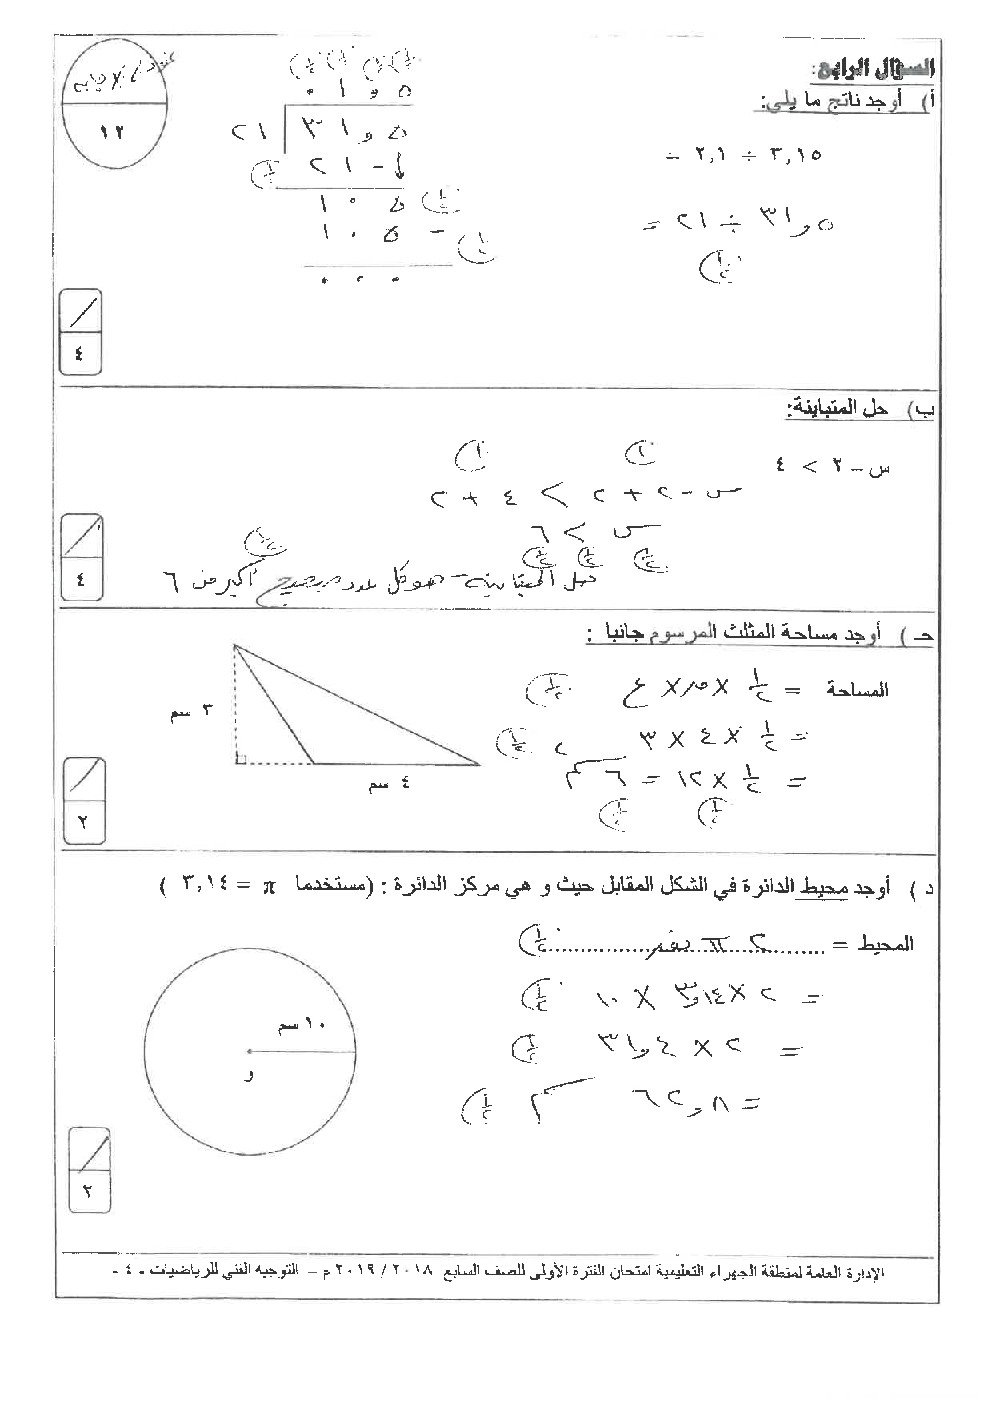 السؤال الرابع:
١٢
أ) أوجد ناتج ما يلي:
٣,١٥ ÷ ٢,١ =
٣١,٥ ÷ ٢١ =
١/٢
٠ ١ , ٥
٢١ ٣١,٥
٢١ -
١٠٥
١٠٥ -
٠٠٠
٤
ب) حل المتباينة:
س - ٢ > ٤
س - ٢ + ٢ > ٤ + ٢
س > ٦
حل المتباينة هو كل عدد صحيح أكبر من ٦
٤
حـ) أوجد مساحة المثلث المرسوم جانبا :
المساحة = ١/٢ × ق × ع
= ١/٢ × ٤ × ٣
= ١/٢ × ١٢ = ٦ سم٢
٣ سم
٤ سم
٢
د) أوجد محيط الدائرة في الشكل المقابل حيث و هي مركز الدائرة : (مستخدما π = ٣,١٤ )
المحيط = ٢ π نق
= ٢ × ٣,١٤ × ١٠
= ٢ × ٣١,٤
= ٦٢,٨ سم
١٠ سم
و
٢
الإدارة العامة لمنطقة الجهراء التعليمية امتحان الفترة الأولى للصف السابع ٢٠١٨ / ٢٠١٩ م – التوجيه الفني للرياضيات - ٤ -